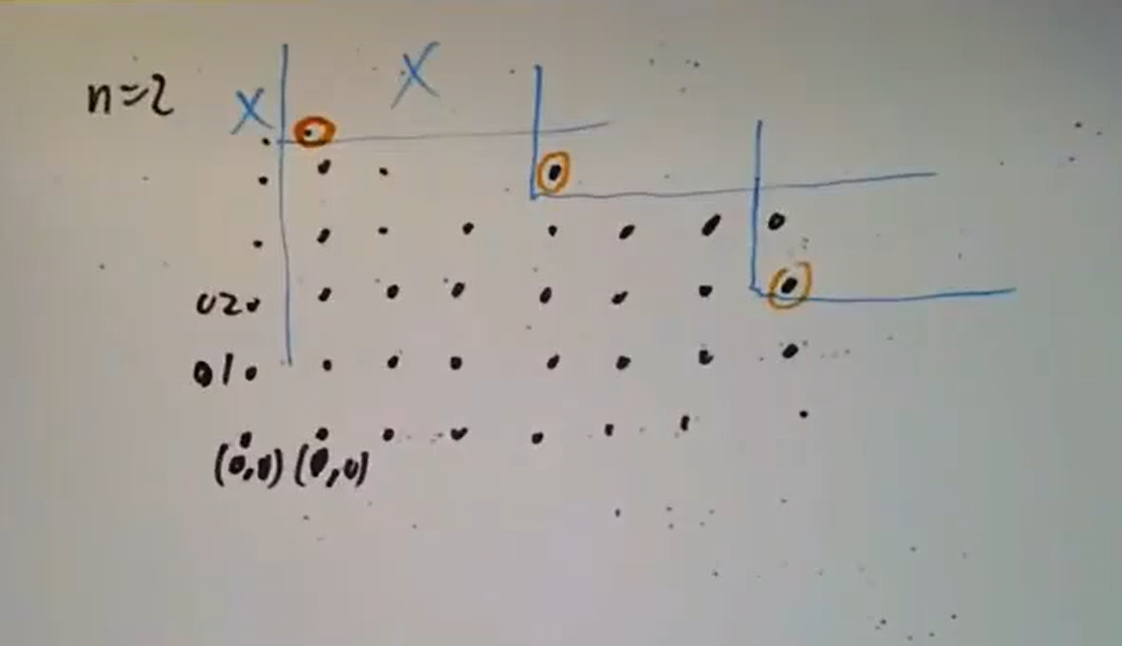 n=2
X
X
02
01
(0,0) (0,0)